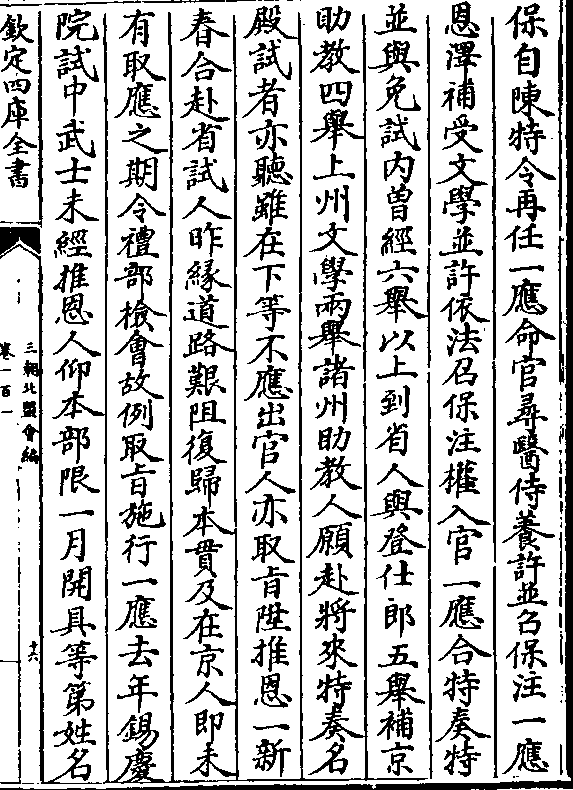 保自陳特令再任一應命官尋醫侍養許並召保注一應
恩澤補受文學並許依法召保注權入官一應合特奏特
並與免試内曽經六舉以上到省人與登仕郎五舉補京
助教四舉上州文學兩舉諸州助教人願赴將來特奏名
殿試者亦聽雖在下等不應出官人亦取㫖陞推恩一新
春合赴省試人昨縁道路艱阻復歸本貫及在京人即未
有取應之期令禮部檢會故例取㫖施行一應去年錫慶
院試中武士未經推恩人仰本部限一月開具等第姓名
欽定四庫全書
三朝北盟會編
卷一百一
十六